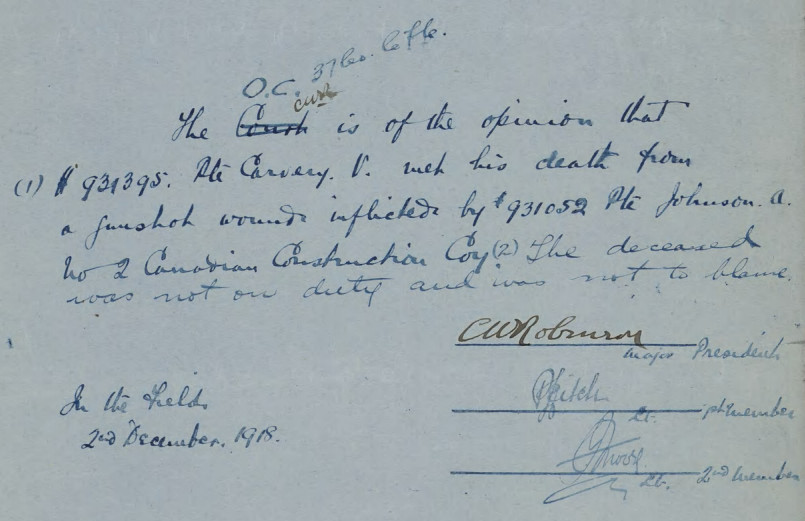 O.C. 37 Co. C.F.C.
CWR
The Court is of the opinion that
(1) # 931395. Pte Carvery. V. met his death from
a gunshot wounds inflicted by # 931052 Pte Johnson. A.
No 2 Canadian Construction Coy (2) The deceased
was not on duty and was not to blame.
CWRobinson
Major President
Lt. 1st member
In the Field
2nd December. 1918.
Lt. 2nd member